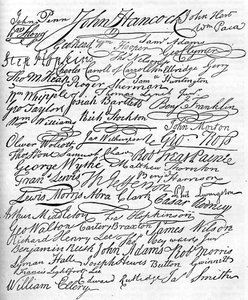 John Penn John Hancock John Hart
Wm Paca
Saml Adams
Wm Hooper
Step. Hopkins Ths Nelson jr.
Charles Carroll of Carrollton Elbridge Gerry
Tho M:Kean Roger Sherman Saml Huntington
Wm Whipple Josiah Bartlett Benj. Franklin
Geo Taylor
Wm Williams Rich Stockton John Morton
Oliver Wolcott Jno Witherspoon Geo. Ross
Thos Stone Samuel Chase Robt Treat Paine
George Wythe Matthew Thornton
Fran. Lewis Benj Harrison
Lewis Morris Abra Clark Caesar Rodney
Arthur Middleton Fras Hopkinson
Geo Walton Carter Braxton James Wilson
Richard Henry Lee Thos Heyward Junr
Benjamin Rush John Adams Robt Morris
Lyman Hall Joseph Hewes Button Gwinnett
Francis Lightfoot Lee
William Ellery Edward Rutledge Ja. Smith